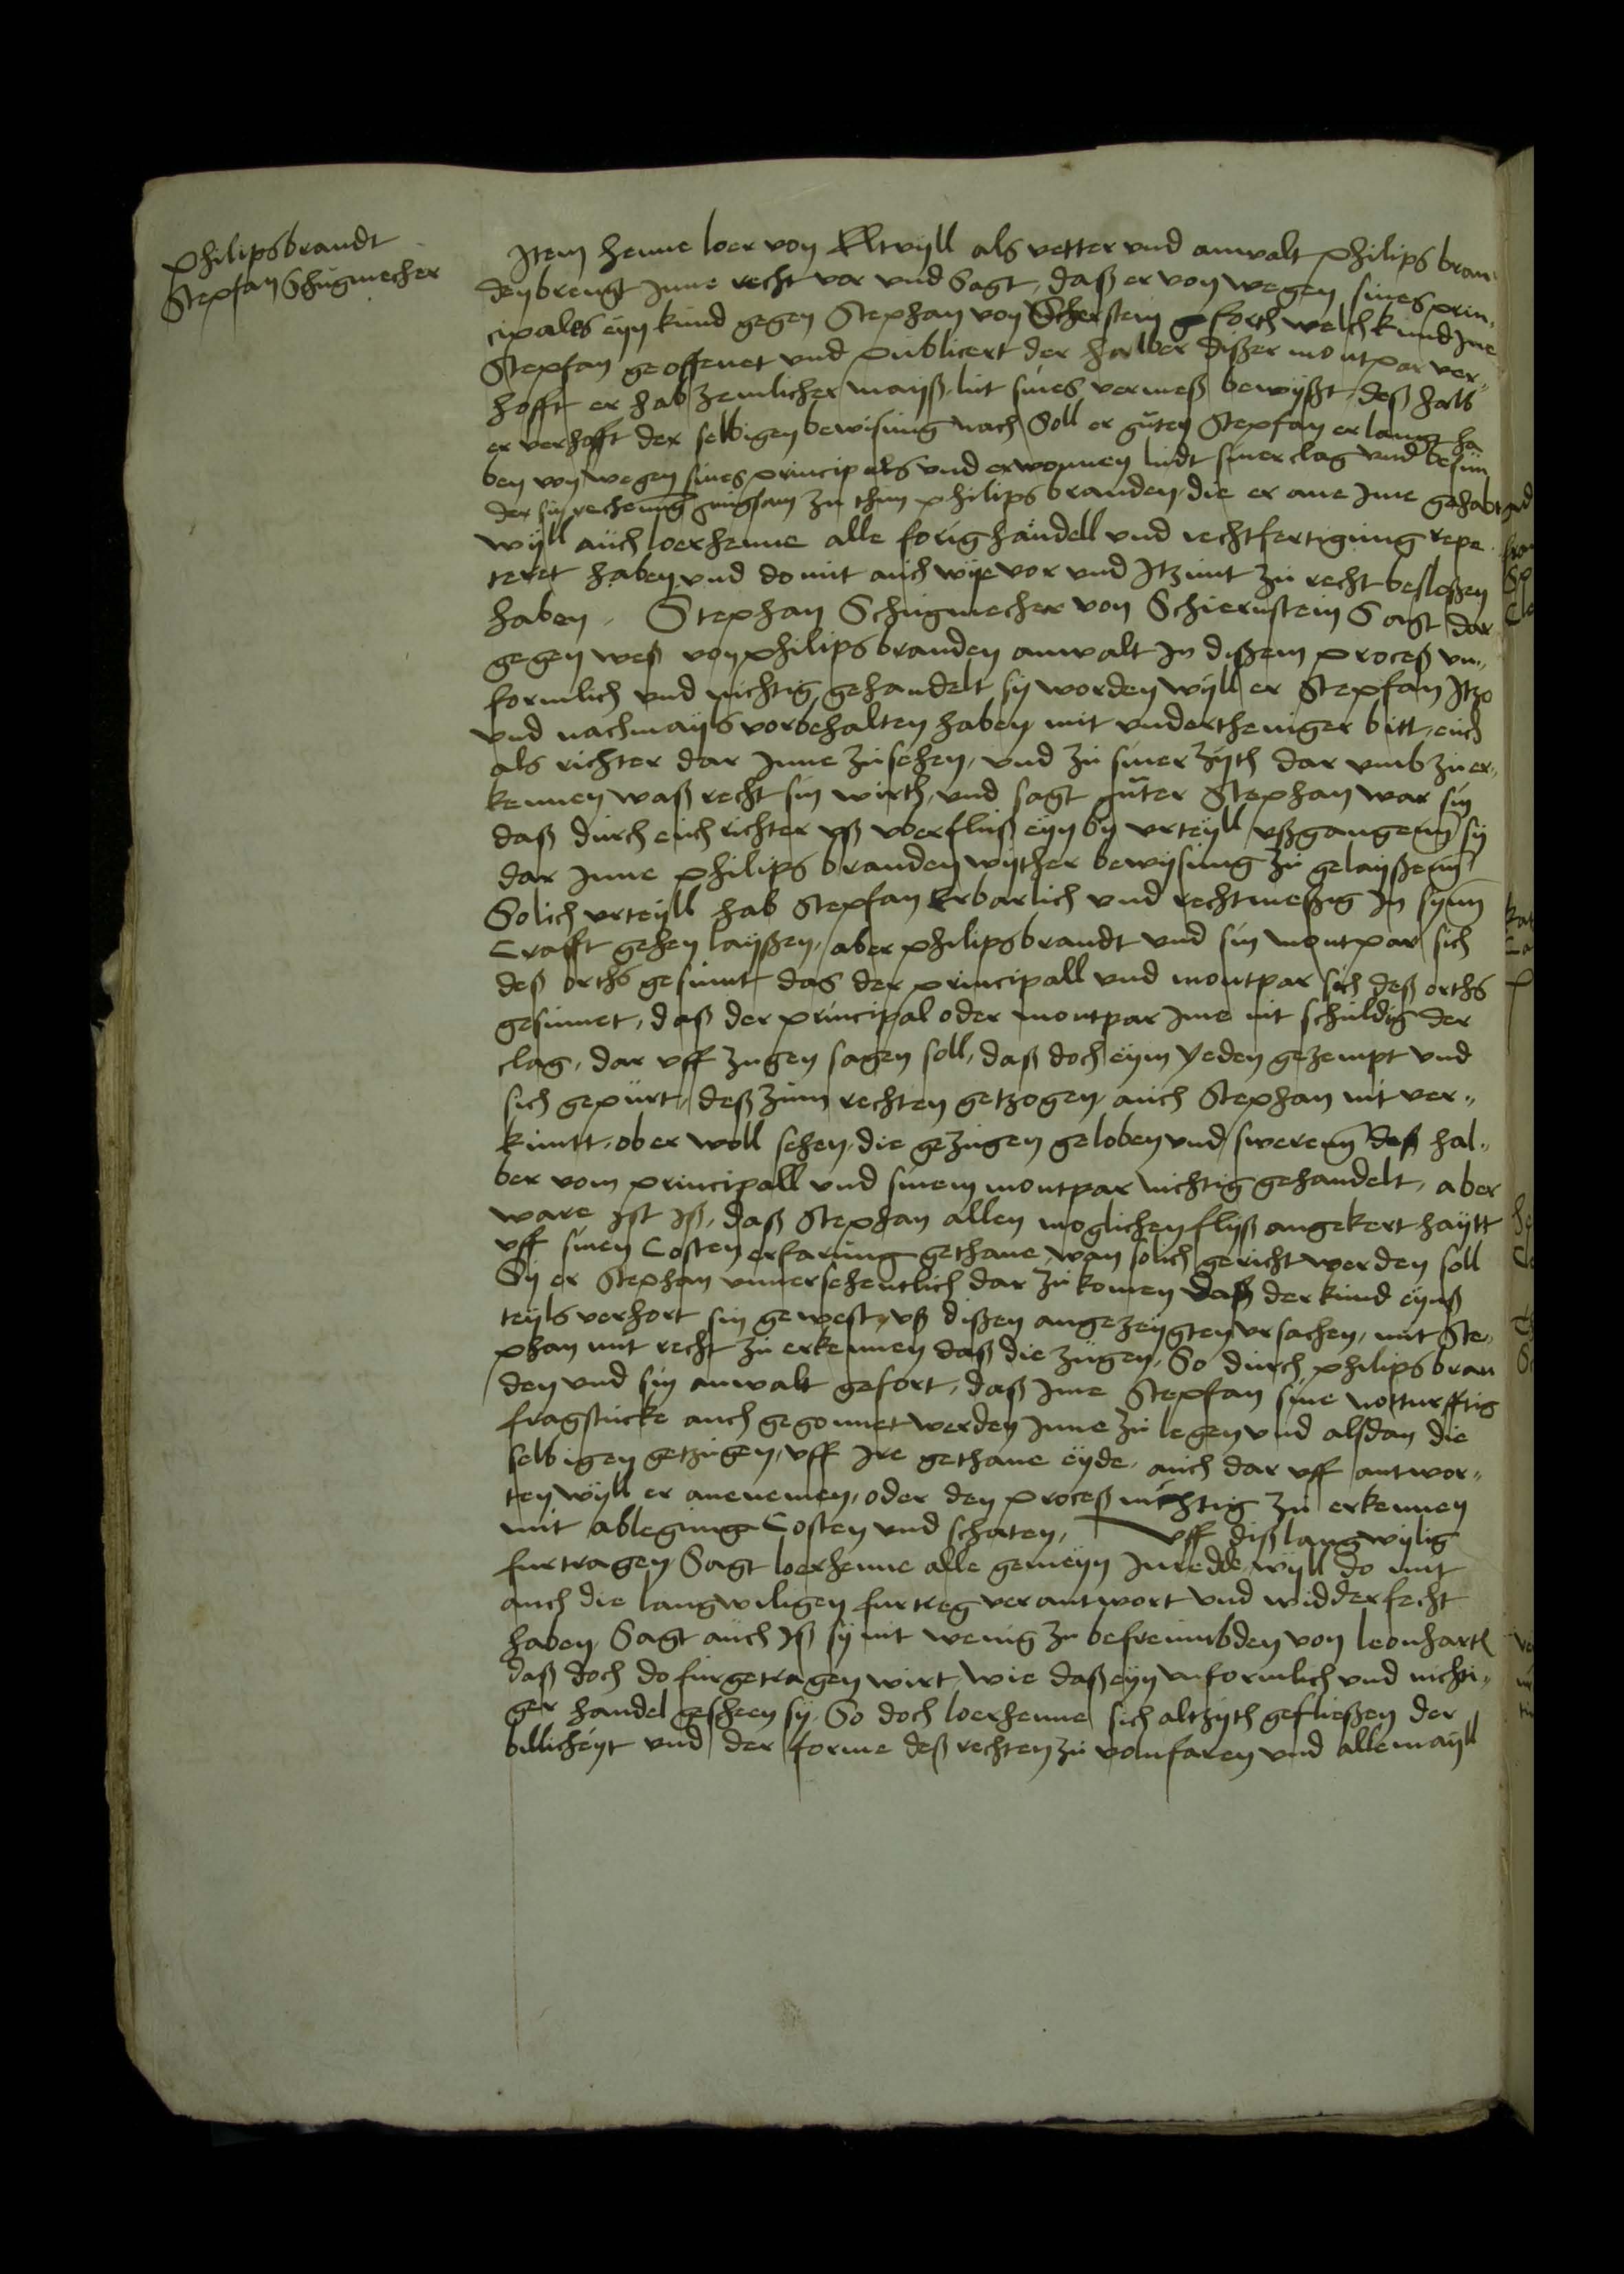 Philips brandt
Stepfan Schugmecher
Item Henne loer von Eltvyll als vetter vnd anwalt Philips bran
den brengt Inne recht vor vnd Sagt, daß er von wegen sines prin¬
cipals eyn kund gegen Stephan von Scherstein gforth welch kund Ine
Stepfan geoffenet vnd publicert der halber dißer montpar ver¬
hofft er hab zemlicher mayß lut sines vermeß bewyßt, deß halb
er verhofft der selbigen bewisung nach Soll er guten Stepfan erlangt ha
ben von wegen sines principals vnd erwonnen ludt siner clag vnd besun
der sin rechenung gnugsam zu thun Philips branden, die er ane Ime gehabt
wyll auch loerhenne alle forig handell vnd rechtfertigung repe
teret haben vnd domit auch wye vor vnd Itzunt zu recht besloßen
haben. Stephan Schugmecher von Schiernstein Sagt dar
gegen weß von Philips branden anwalt In dißem proceß vn¬
formlich vnd nichtig gehandelt sy worden wyll er Stepfan Itzo
vnd nachmayls vorbehalten haben mit vndertheniger bitt, euch
als richter dar Inne zusehen, vnd zu siner zyth dar vmb zu er¬
kennen waß recht sin wirth, vnd sagt guter Stephan war sin
daß durch euch richter vß vberfluß eyn by vrteyll vßgangenn sy
dar Inne Philips branden wyther bewysung zu gelayßenn
Solich vrteyll hab Stepfan Erbarlich vnd rechtmeßig In synn
Crafft gehen layßen, aber Philips brandt vnd sin montpar sich
deß orths gesumt das der principall vnd montpar sich deß orths
gesumet, daß der principal oder montpar Ime nit schuldig der
clag, dar vff zugen sagen soll, daß doch eym yeden gezempt vnd
sich gepurt, deß zum rechten getzogen, auch Stephan nit ver¬
kuntt, ob er woll sehen, die gezugen geloben vnd swerenn deß hal¬
ber vom principall vnd sinem montpar nichtig gehandelt, aber
ware ist Iß, daß Stephan allen moglichen flyß angekert haytt
vff sinen Costen erfarung gethane, wan solich gericht werden soll
Sy er Stephan vnuersehentlich dar zu komen daß der kund eyns
teyls verhort sin gewest, vß dißen angezeygten vrsachen, mit Ste¬
phan mit recht zu erkennen daß die zugen, So durch Philips bran
den vnd sin anwalt gefort, daß Ime Stepfan sine notturfftig
fragstucke auch gegonnet werden Inne zu legen vnd alsdan die
selbigen getzugen, vff Ire gethane eyde, auch dar vff antwor¬
ten wyll er anenemen, oder den proceß nichtig zu erkennen
mit ablegung Costen vnd schaten, vff diß langwylig
furtragen Sagt loerhenne alle gemeyn Inredde wyll do mit
auch die langwiligen furtreg verantwort vnd widderfecht
haben, Sagt auch Iß sy nit wenig zu befreimbden von leonhartt
daß doch do furgetragen wirt, wie daß eyn vnformlich vnd nichti¬
ger handel gescheen sy, So doch loerhenne sich altzyth gefließen der
billicheyt vnd der forme deß rechten zu vomfaren vnd allemayll